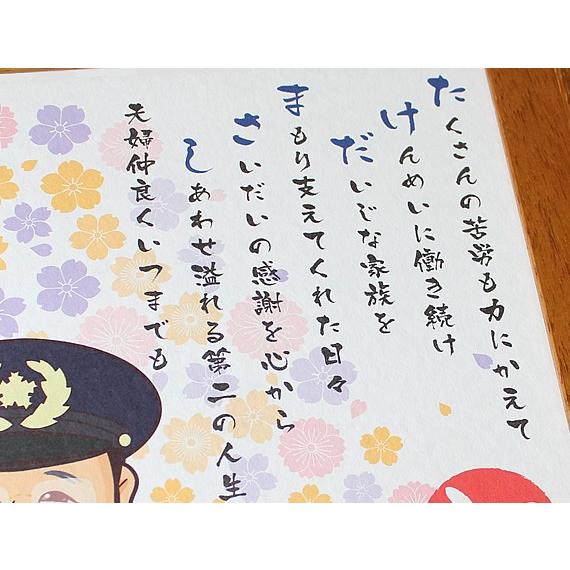 たくさんの苦労も力にかえて
けんめいに働き続け
だいじな家族を
まもり支えてくれた日々
さいだいの感謝を心から
しあわせ溢れる第二の人生
夫婦仲良くいつまでも